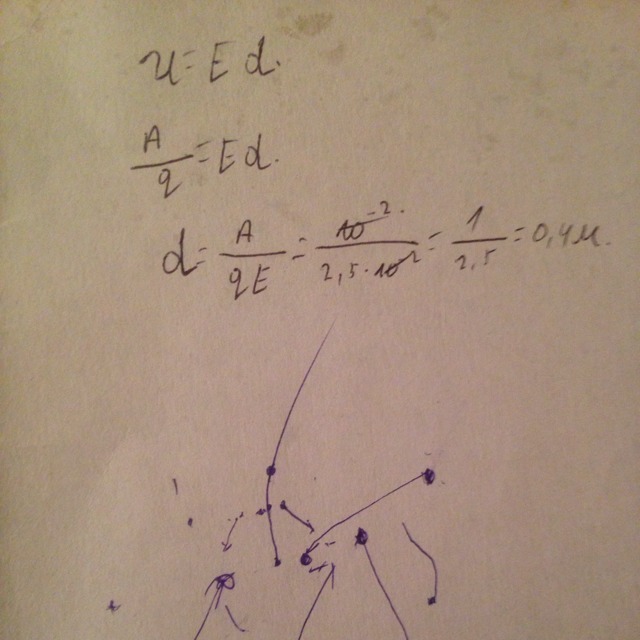 U = E d.
A/q = E d.
d = A/qE = 10⁻²/2,5·10⁻² = 1/2,5 = 0,4 м.